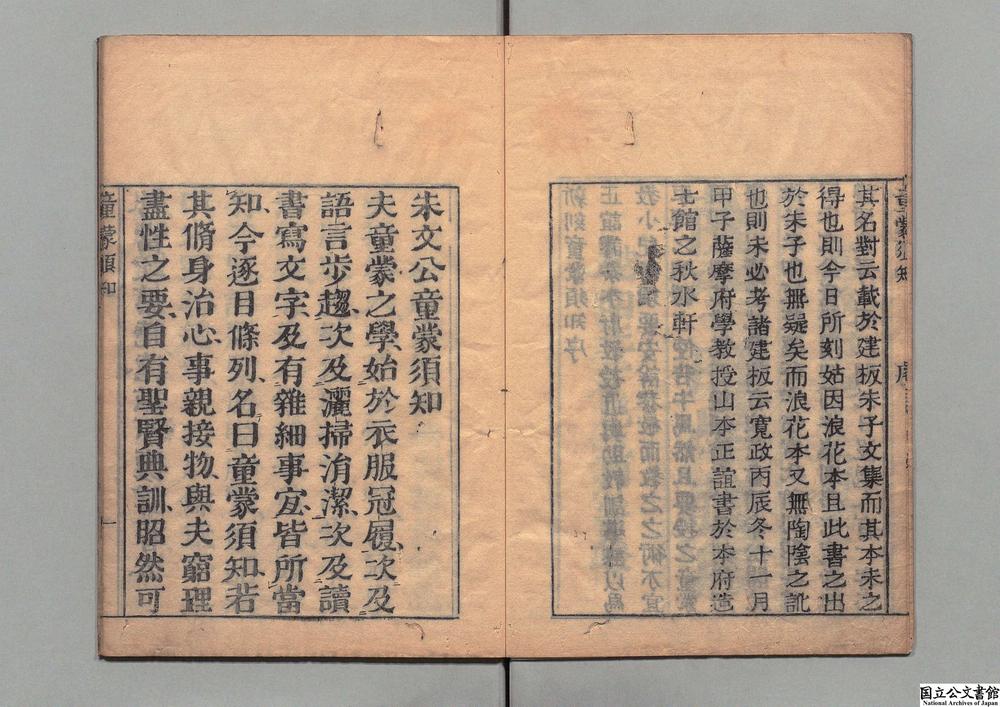 其名對云載於建板朱子文集而其本未之
得也則今日所刻姑因浪花本且此書之出
於朱子也無疑矣而浪花本又無陶陰之訛
也則未必考諸建板云寛政丙辰冬十一月
甲子薩摩府學教授山本正誼書於本府造
士館之秋水軒
童蒙須知 序
朱文公童蒙須知
夫童蒙之學始於衣服冠履次及
語言步趨次及灑掃涓潔次及讀
書寫文字及有雜細事宜皆所當
知今逐目條列名曰童蒙須知若
其脩身治心事親接物與夫窮理
盡性之要自有聖賢典訓昭然可
童蒙須知 一
国立公文書館
National Archives of Japan